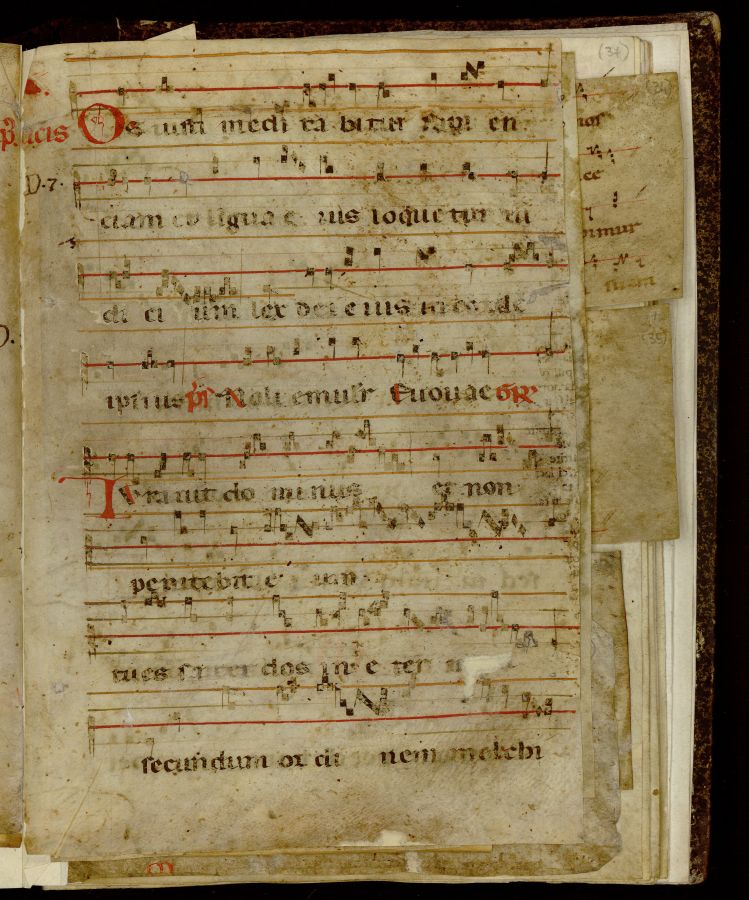 (34)
Os iusti medi ta bitur sapi en
D.7.
ciam et ligua e ius loque tur iu
di ci um lex dei e ius in corde
ipsius ps Noli emular Euouae Gr
Iurauit do minus et non
penitebit e um
tu es sacer dos in e ter
secundum or di nem melchi